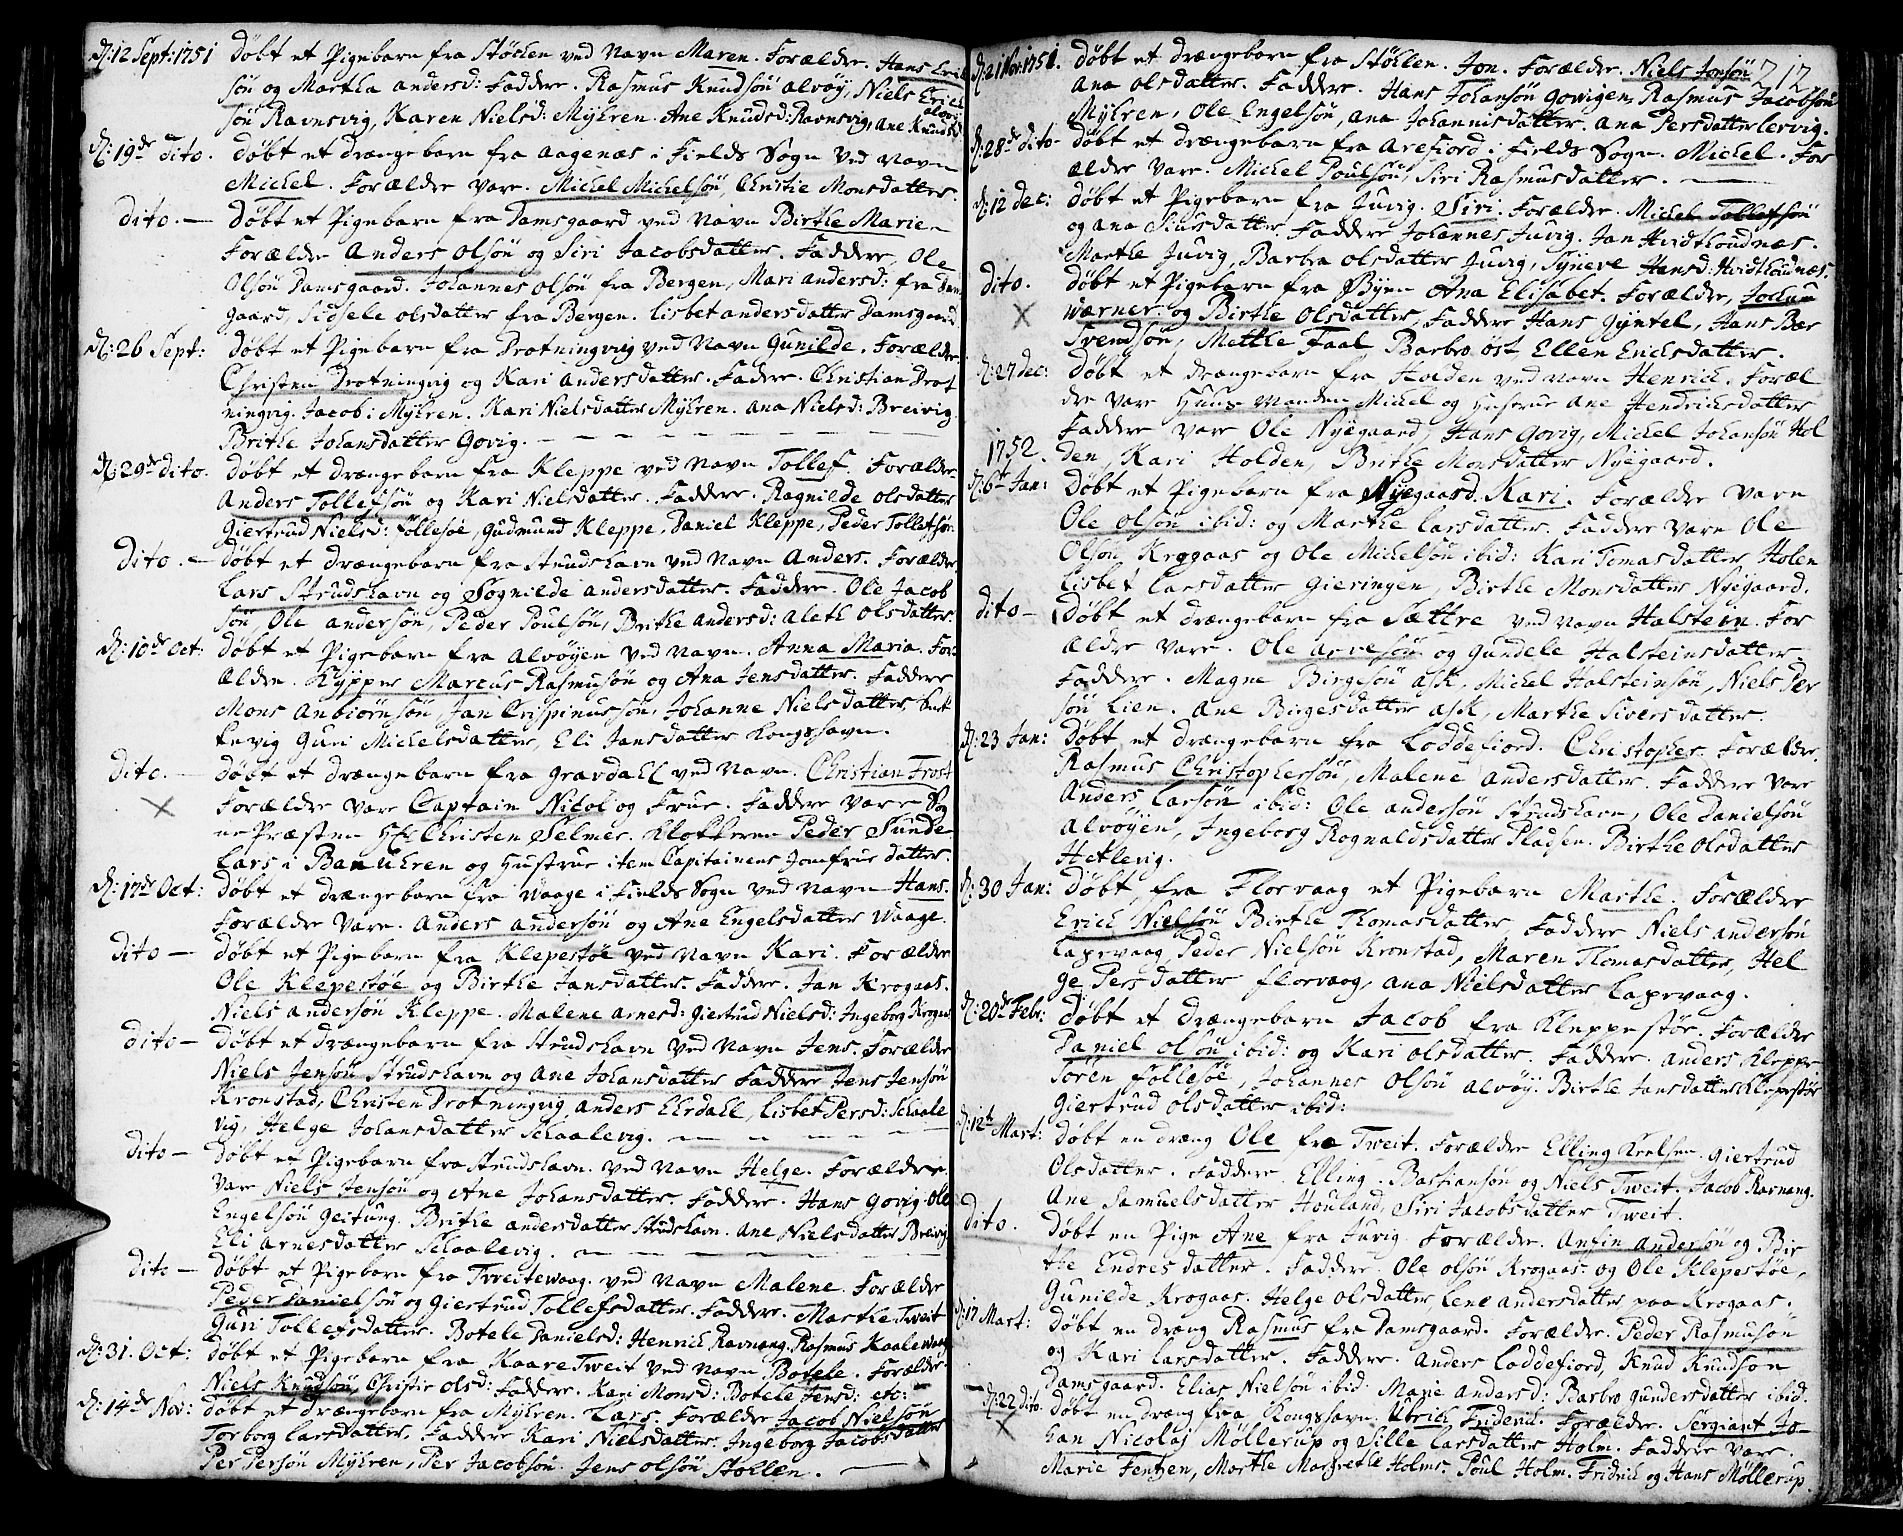 d: 12 Sept: 1751 Døbt et Pigebarn fra Støcken ved Navn Maren. Forældre. Hans Erich
søn og Martha Andersd: Faddere. Rasmus Knudsøn Alvøy, Niels Erich
søn Ravnsvig, Karen Nielsd: Myhren. Ane Knudsd: Ravnsvig, Ane Knudsd: Alvøy
d: 19de dito. Døbt et drængebarn fra Aagenæs i Fields Sogn ved Navn
Michel. Forældre vare. Michel Michelsøn, Christie Monsdatter.
dito. — Døbt et Pigebarn fra Damsgaard ved Navn Birthe Marie.
Forældre Anders Olsøn og Siri Jacobsdatter. Faddere, Ole
Olsøn Damsgaard. Johannes Olsøn fra Bergen, Mari Andersd: fra Dam
gaard, Sidsele Olsdatter fra Bergen. Lisbet Andersdatter Damsgaard.
d: 26 Sept: Døbt et Pigebarn fra Drotningvig ved Navn Gunilde. Forældre
Christen Drotningvig og Kari Andersdatter. Fadere. Christian Drot
ningvig. Jacob: Myhren. Kari Nielsdatter Myhren. Ana Nielsd: Breivig.
Brithe Johansdatter Govig. —
d: 29de dito. Døbt et drængebarn fra Kleppe ved Navn Tollef. Forældre
Anders Tollefsøn og Kari Nielsdatter. Faddere. Ragnilde Olsdatter
Giertrud Nielsd: Follesøe, Gudmund Kleppe, Daniel Kleppe, Peder Tollefsøn.
dito. — Døbt et drængebarn fra Strudshavn ved Navn Anders. Forældre
Lars Strudshavn og Sognilde Andersdatter. Faddere. Ole Jacob
søn, Ole Andersøn, Peder Poulsøn, Brithe Andersd: Aleth Olsdatter.
d: 10de Oct: Døbt et Pigebarn fra Alvøyen ved Navn. Anna Maria. For
ældre. Kypper Marcus Rasmusøn og Ana Jensdatter. Faddere
Mons Anbiørnsøn, Jan Crispinussøn, Johanne Nielsdatter
Guri Michelsdatter, Eli Jansdatter Kongshavn.
dito. — Døbt et drængebarn fra Gravdahl ved Navn. Christian Frost
× Forældre vare Captain Nicol og Frue. Faddere vare Sog
ne Præsten Hr: Christen Selmer. Klokkeren Peder Sunde
Lars i Banchren og Hustrue item Capitainens Jomfrue datter.
d: 17de Oct: Døbt et drængebarn fra Waage i Fields Sogn ved Navn Hans.
Forældre vare. Anders Andersøn og Ane Engelsdatter Waage.
dito — Døbt et Pigebarn fra Klepestøe ved Navn Kari. Forældre
Ole Klepestøe og Birthe Jansdatter. Faddere. Jan Krogaas.
Niels Andersøn Kleppe. Malene Arnesd: Giertrud Nielsd: Ingeborg Krogaas
dito — Døbt et drængebarn fra Strudshavn ved Navn Jens. Forældre
Niels Jensøn Strudshavn og Ane Johansdatter Faddere Jens Jensøn
Kronstad, Christen Drotningvig, Anders Ekrdahl, Lisbet Persd: Schaale
vig, Helge Johansdatter Schaalevig. —
dito — Døbt et Pigebarn fra Strudshavn. ved Navn Helge. Forældre
vare Niels Jensøn og Ane Johansdatter. Faddere. Hans Govig. Ole
Engelsøn Geitung. Brithe Andersdatter Strudshavn. Ane Nielsdatter Breivig
Eli Arnesdatter Schaalevig. —
dito — Døbt et Pigebarn fra Tweitewaag. ved Navn Malene. Forældre
Peder Danielsøn og Giertrud Tollefsdatter. Faddere. Marthe Tweit
Guri Tollefsdatter. Botele Danielsd: Henrich Ravnang. Rasmus Kaalewaag
d: 31. Oct: Døbt et Pigebarn fra Kaare Tweit ved Navn Botele. Forældre
Niels Knudsøn, Christie Olsd: Faddere. Kari Monsd: Botele Jensd: etc: —
d: 14de Nov: Døbt et drængebarn fra Myhren. Lars. Forældre Jacob Nielsøn
Torborg Larsdatter. Faddere Kari Nielsdatter. Ingeborg Jacobsdatter
Per Persøn Myhren, Per Jacobsøn. Jens Olsøn Støcken. —
212
d: 21 Nov: 1751. Døbt et drængebarn fra Støcken. Jon. Forældre. Niels Jonsøn
Ana Olsdatter. Faddere. Hans Johansøn Govigen, Rasmus Jacobsøn
Myhren, Ole Engelsøn, Ana Johannisdatter. Ana Persdatter Lervig.
d: 28de dito Døbt et drængebarn fra Arefiord i Fields Sogn. Michel. For
ældre vare. Michel Poulsøn, Siri Rasmusdatter. —
d: 12 Dec: Døbt et Pigebarn fra Juvig. Siri. Forældre. Michel Tollefsøn
og Ana Siursdatter. Faddere Johannes Juvig. Jan Hvidthoudnæs.
Marthe Juvig, Barbra Olsdatter Juvig, Syneve Hansd: Hvidthoudnæs.
dito. Døbt et Pigebarn fra Byen Ana Elisabet. Forældre, Johan
× Wærner og Birthe Olsdatter, Faddere Hans Gyntel, Hans Bær
Svendsøn, Metthe Faal Barbro Øst Ellen Erichsdatter.
d: 27 Dec: Døbt et drængebarn fra Holden ved Navn Henrich. Foræl
dre vare Huus Manden Michel og Hustrue Ane Hendrichsdatter
Faddere vare Ole Nyegaard, Hans Govig, Michel Johansøn Hol
1752. den, Kari Holden, Brithe Monsdatter Nyegaard.
d: 6te Jan: Døbt et Pigebarn fra Nyegaard. Kari. Forældre vare
Ole Olsøn ibid: og Marthe Larsdatter. Faddere vare Ole
Olsøn Krogaas og Ole Michelsøn ibid: Kari Tomasdatter Holen
Lisbet Larsdatter Gieringen, Birthe Monsdatter Nyegaard.
dito — Døbt et drængebarn fra Sættre ved Navn Halstein. For
ældre vare. Ole Arnesøn og Gundele Halsteinsdatter
Faddere. Magne Birgesøn Ask, Michel Halsteinsøn, Niels Per
søn Lien. Ane Birgesdatter Ask, Marthe Siversdatter.
d: 23 Jan: Døbt et drængebarn fra Loddefiord. Christopher. Forældre.
Rasmus Christophersøn, Malene Andersdatter. Faddere vare
Anders Larsøn ibid: Ole Andersøn Strudshavn, Ole Danielsøn
Alvøyen, Ingeborg Rognaldsdatter Pladsen. Birthe Olsdatter
Hetlevig.
d: 30 Jan: Døbt fra Florvaag et Pigebarn Marthe. Forældre
Erich Nielsøn Birthe Thomasdatter, Faddere Niels Andersøn
Laxevaag, Peder Nielsøn Kronstad, Maren Thomasdatter, Hel
ge Persdatter Florvaag, Ana Nielsdatter Laxevaag.
d: 20de Febr: Døbt et drængebarn Jacob fra Kleppestøe. Forældre
Daniel Olsøn ibid: og Kari Olsdatter. Faddere. Anders Kleppe.
Søren Follesøe, Johannes Olsøn Alvøy. Birthe Jansdatter Klepestøe
Giertrud Olsdatter ibid:
d: 12te Mart: Døbt en dræng Ole fra Tweit. Forældre Elling Keelsen. Giertrud
Olsdatter. Faddere. Elling. Bastiansøn og Niels Tweit. Jacob Ravnang.
Ane Samuelsdatter Houland, Siri Jacobsdatter Tweit.
dito. Døbt en Pige Ane fra Juvig. Forældre. Anfin Andersøn og Bir
the Endresdatter. Faddere. Ole Olsøn Krogaas. og Ole Klepestøe,
Gunilde Krogaas. Helge Olsdatter, Lene Andersdatter paa Krogaas.
d: 17 Mart: Døbt en dræng Rasmus fra Damsgaard. Forældre. Peder Rasmusøn
og Kari Larsdatter. Faddere. Anders Loddefiord, Knud Knudsøn
Damsgaard. Elias Nielsøn ibid. Marie Andersd: Barbro Gundersdatter ibid.
d: 22 dito. Døbt en dræng fra Kongshavn. Ulrich Friderich. Forældre. Sergiant Jo-
× han Nicolaj Møllerup og Sille Larsdatter Holm. Faddere vare.
Marie Jentzen, Marthe Margrethe Holms. Poul Holm. Fridrich og Hans Møllerup.